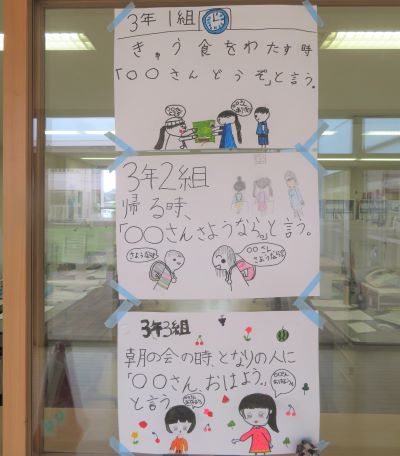 3年1組
きゅう食をわたす時
「〇〇さんどうぞ」と言う。
3年2組
帰る時、
「〇〇さんさようなら。」と言う。
さようなら
〇〇さん
さようなら
3年3組
朝の会の時、となりの人に
「〇〇さん、おはよう。」
と言う